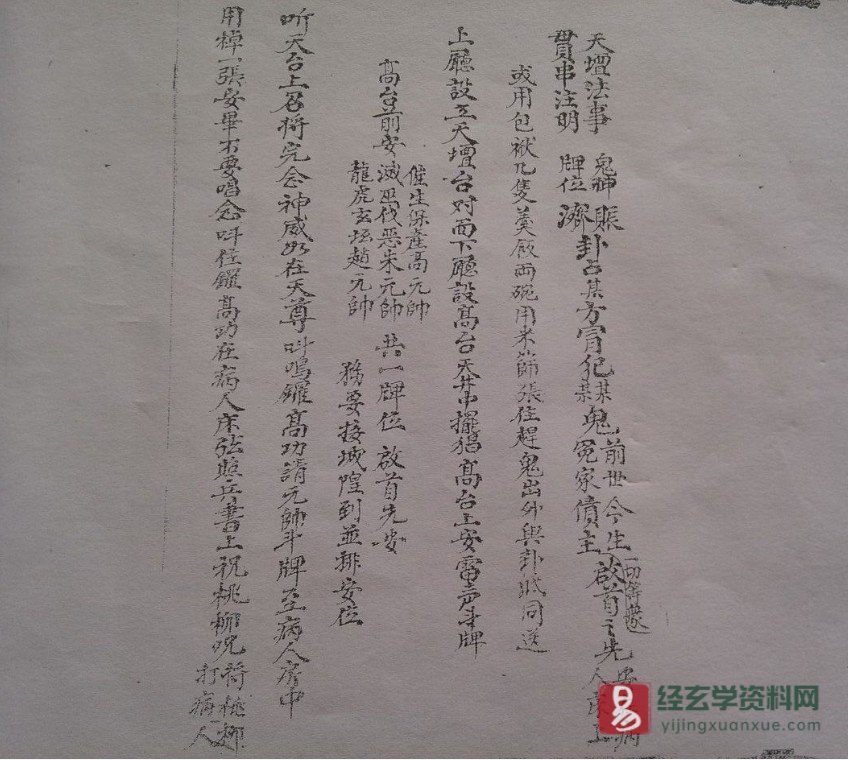 天壇法事 鬼神 賑 卦占某方冒犯某某鬼 前世今生 啟首之先
貫串注明 牌位 濟 冤家債主 一切等衆 人床上
或用包袱几隻羹飯兩碗用米篩張住趕鬼出外與卦賬同送
上廳設立天壇台对面下廳設高台天井中擺猖高台上安雷声斗牌
催生保產高元帥
高台前安 滅巫伐惡朱元帥 共一牌位 啟首先安
龍虎玄坛趙元帥 務要接城隍到並排安位
听天台上召將完念神威如在天尊叫鳴鑼高功請元帥斗牌至病人房中
用棹一張安畢不要唱念叫住鑼高功在病人床弦照兵書上祝桃柳咒將桃柳
打病人
易
经玄学资料网
yijingxuanxue.com